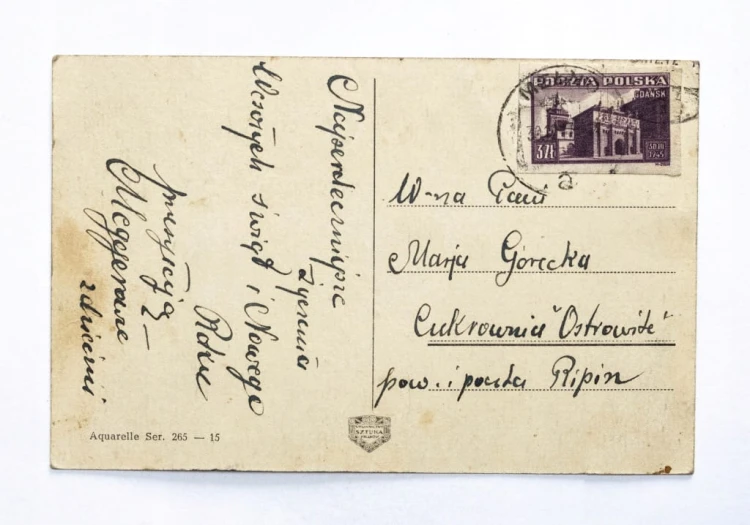 Najserdeczniejsze
życzenia
Wesołych świąt i Nowego
Roku
przesyłają
z dziećmi
Aquarelle Ser. 265 — 15
SZTUKA
POCZTA POLSKA
GDAŃSK
3 ZŁ
30 III
1945
W-na Pani
Marja Górecka
Cukrownia "Ostrowite"
pow. i poczta Ripin